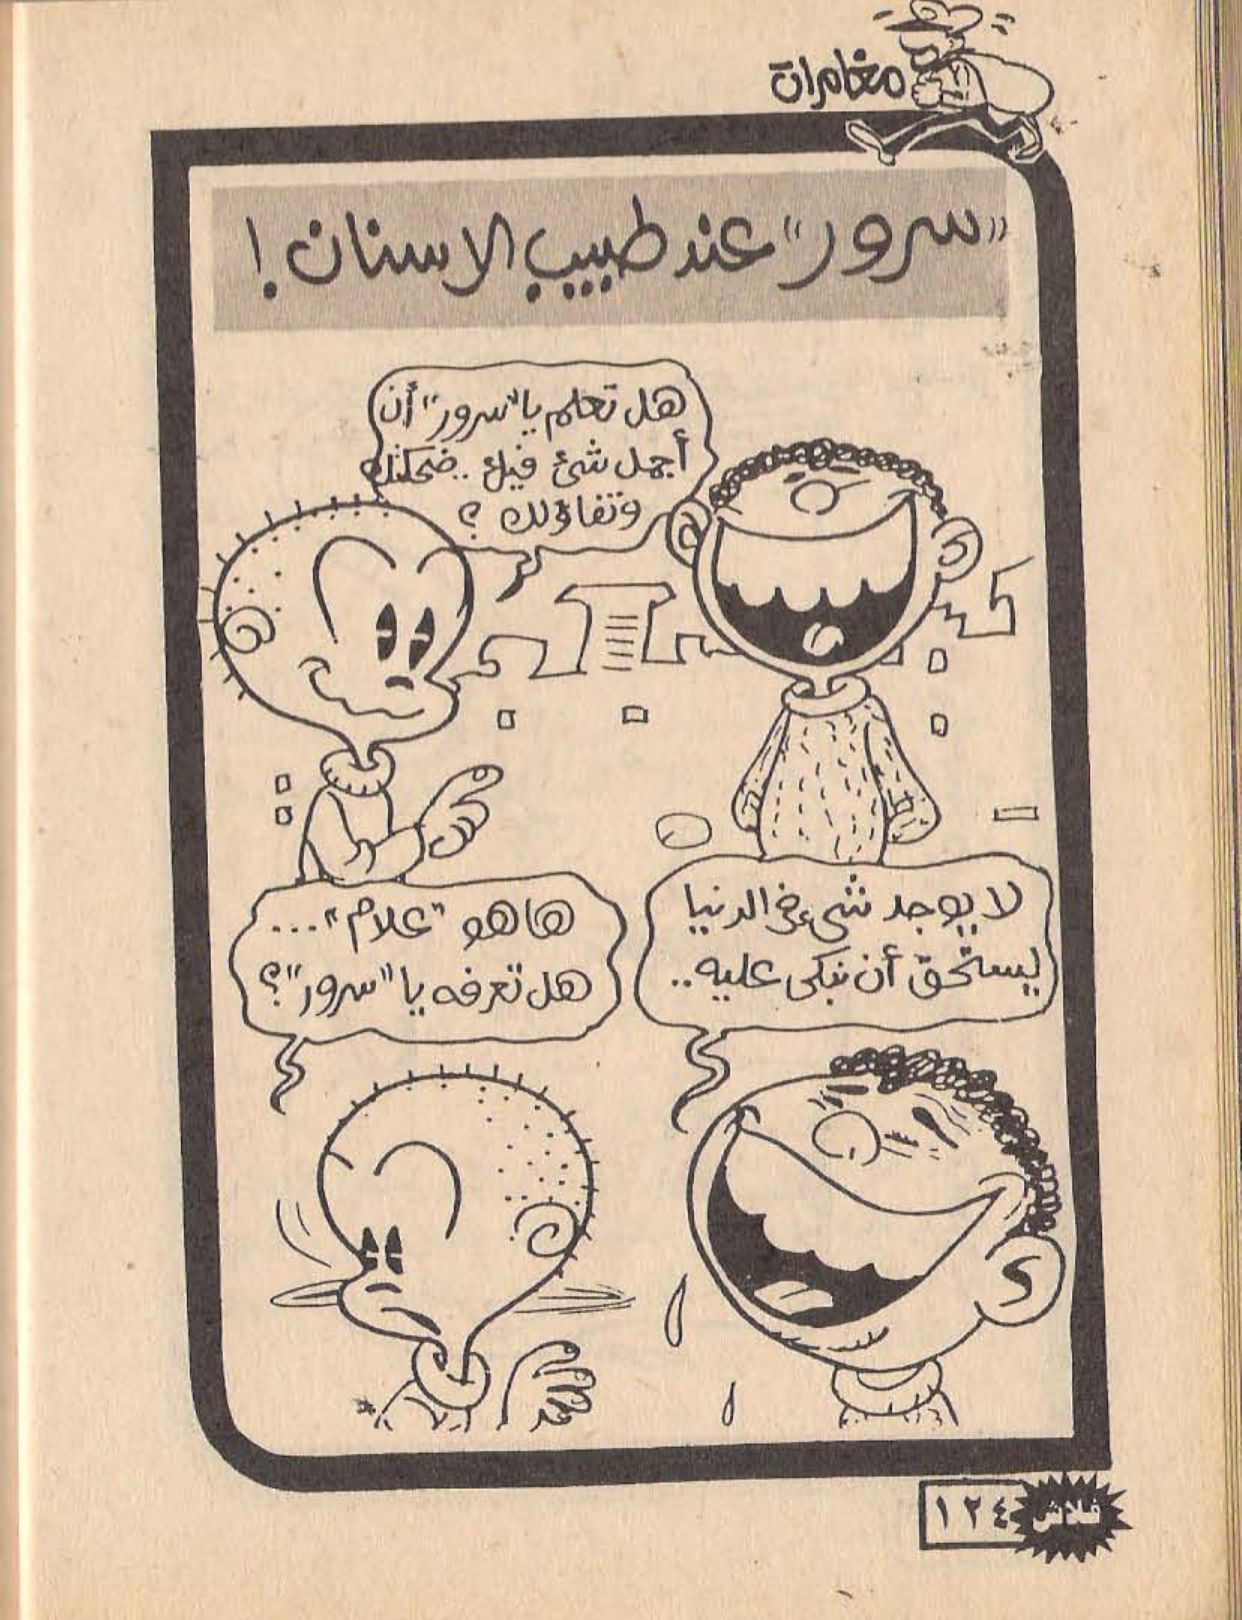 مغامرات
"سرور" عند طبيب الاسنان !
هل تعلم يا "سرور" أن
أجمل شئ فيك .. ضحكتك
وتفاؤلك ؟
لا يوجد شىء فى الدنيا
يستحق أن نبكى عليه ..
ها هو "علام" ...
هل تعرفه يا "سرور" ؟
فلاش ١٢٤